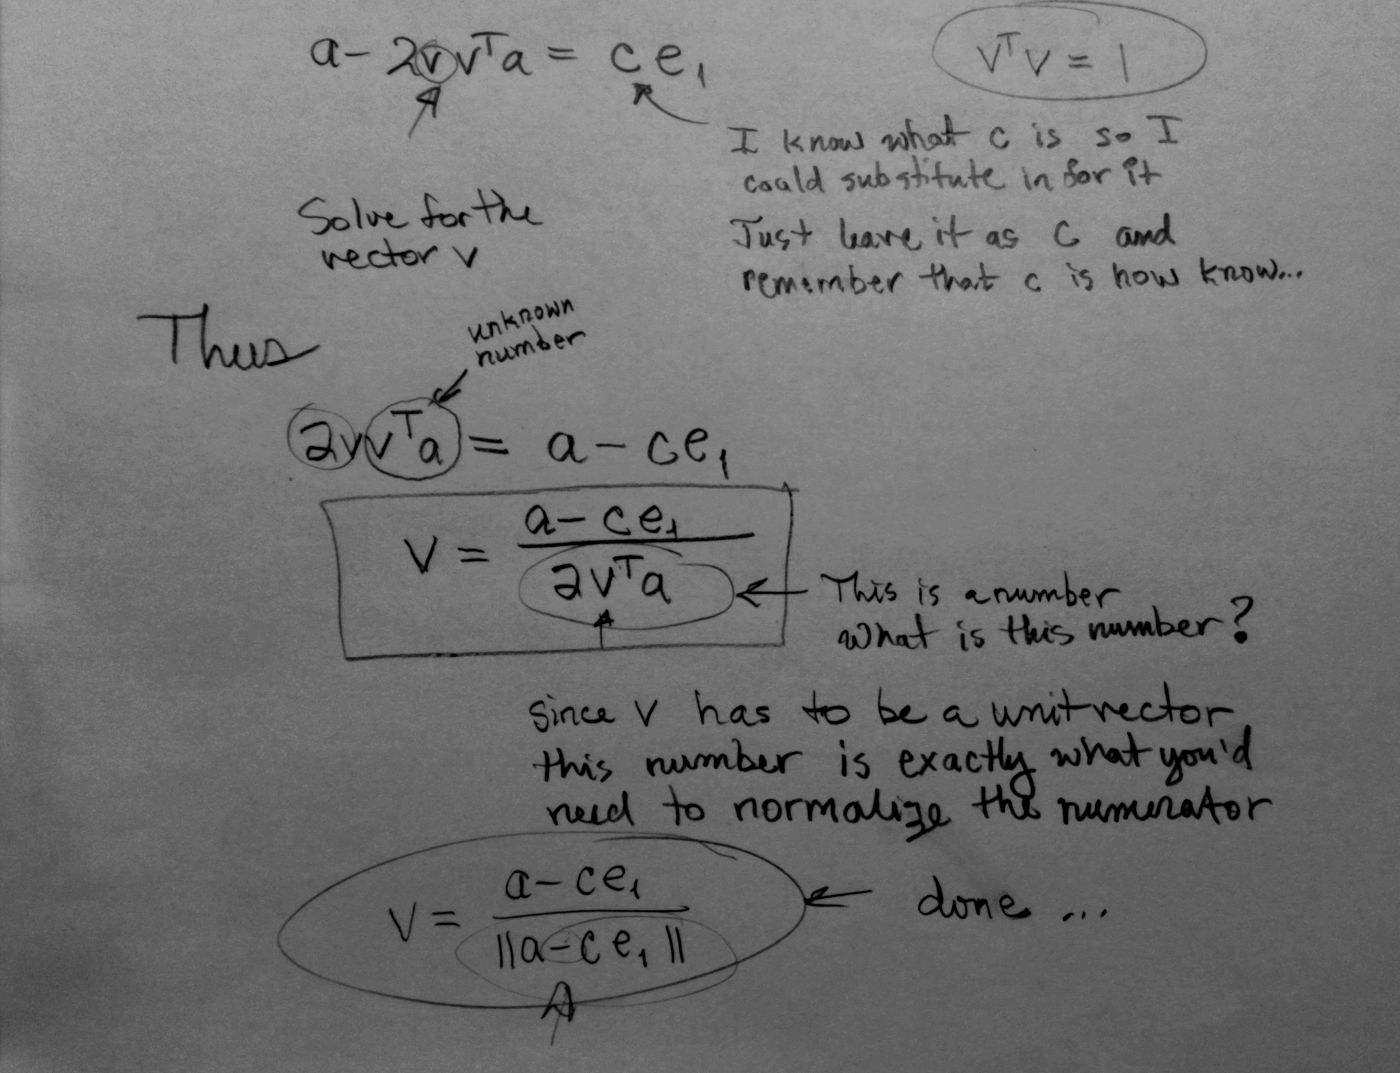 a - 2vvᵀa = ce₁
vᵀv = 1
I know what c is so I
could substitute in for it
Just leave it as c and
remember that c is now know...
Solve for the
vector v
Thus
unknown
number
2vvᵀa = a - ce₁
v = (a - ce₁) / (2vᵀa)
This is a number
What is this number?
since v has to be a unit vector
this number is exactly what you'd
need to normalize the numerator
v = (a - ce₁) / ||a - ce₁||
done ...